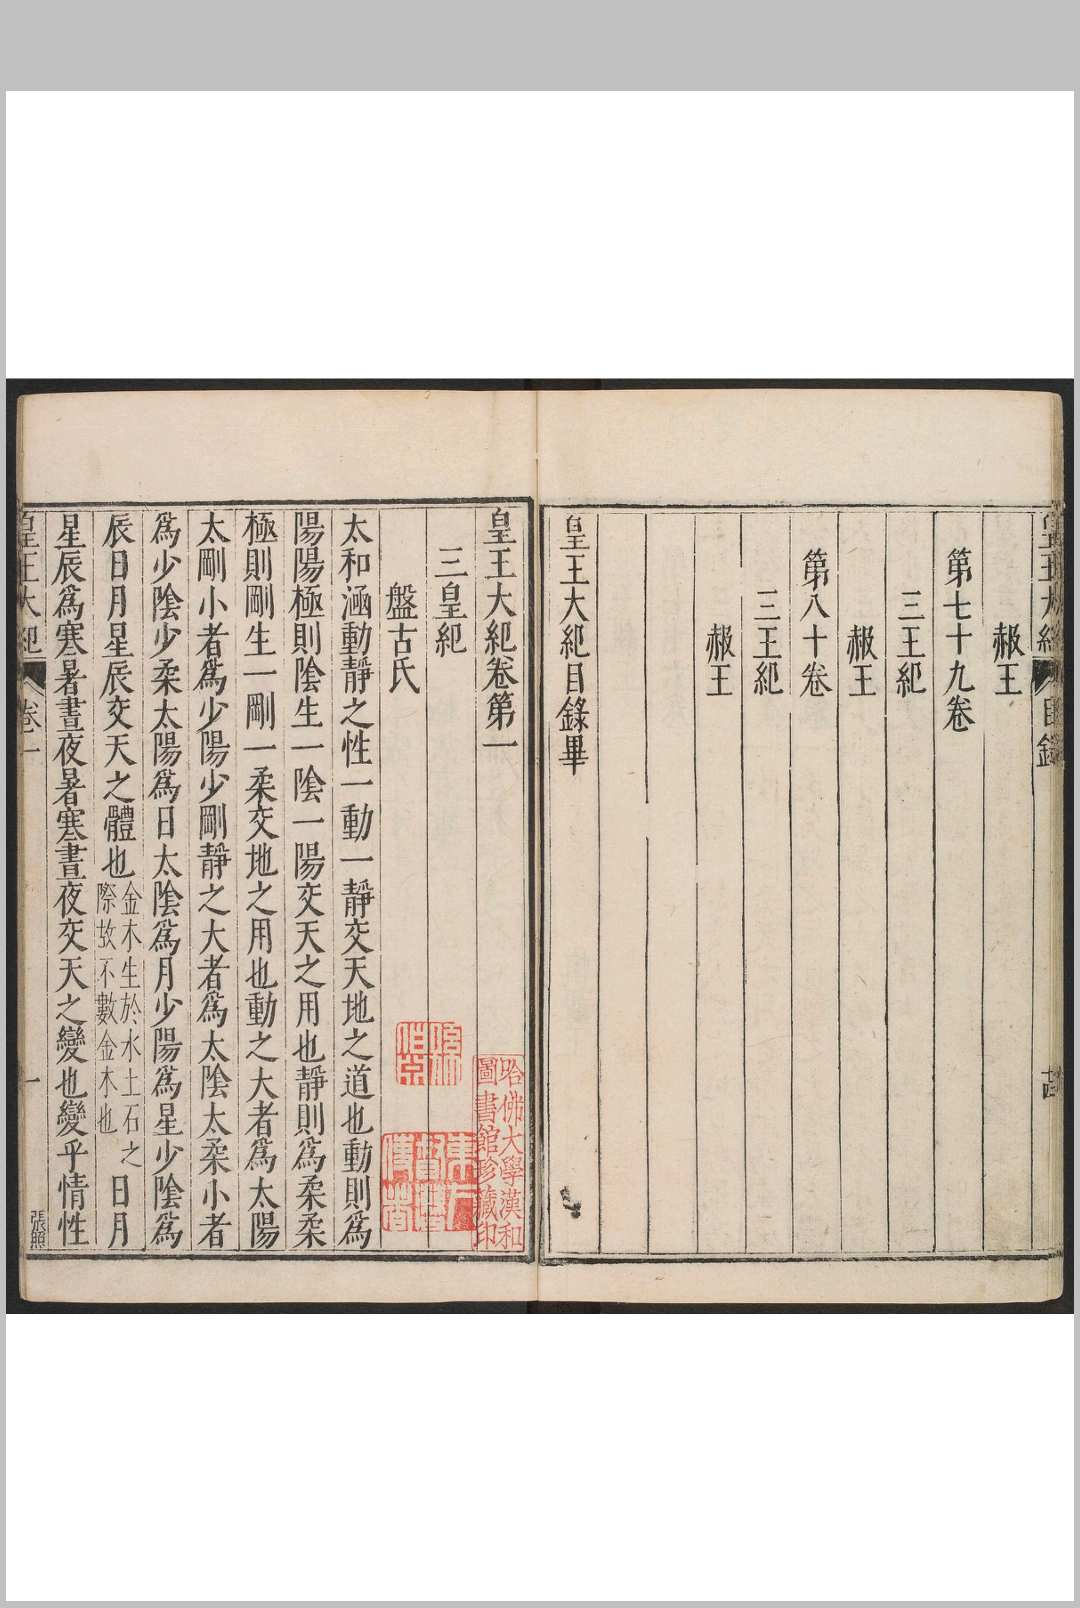 赧王
第七十九卷
三王紀
赧王
第八十卷
三王紀
赧王
皇王大紀目錄畢
皇王大紀卷第一
三皇紀
盤古氏
太和涵動靜之性一動一靜交天地之道也動則爲
陽陽極則陰生一陰一陽交天之用也靜則爲柔柔
極則剛生一剛一柔交地之用也動之大者爲太陽
太剛小者爲少陽少剛靜之大者爲太陰太柔小者
爲少陰少柔太陽爲日太陰爲月少陽爲星少陰爲
辰日月星辰交天之體也金木生於水土石之際故不數金木也日月
星辰爲寒暑晝夜暑寒晝夜交天之變也變乎情性
皇王大紀 卷一 一
張照
哈佛大學漢和圖書館珍藏印